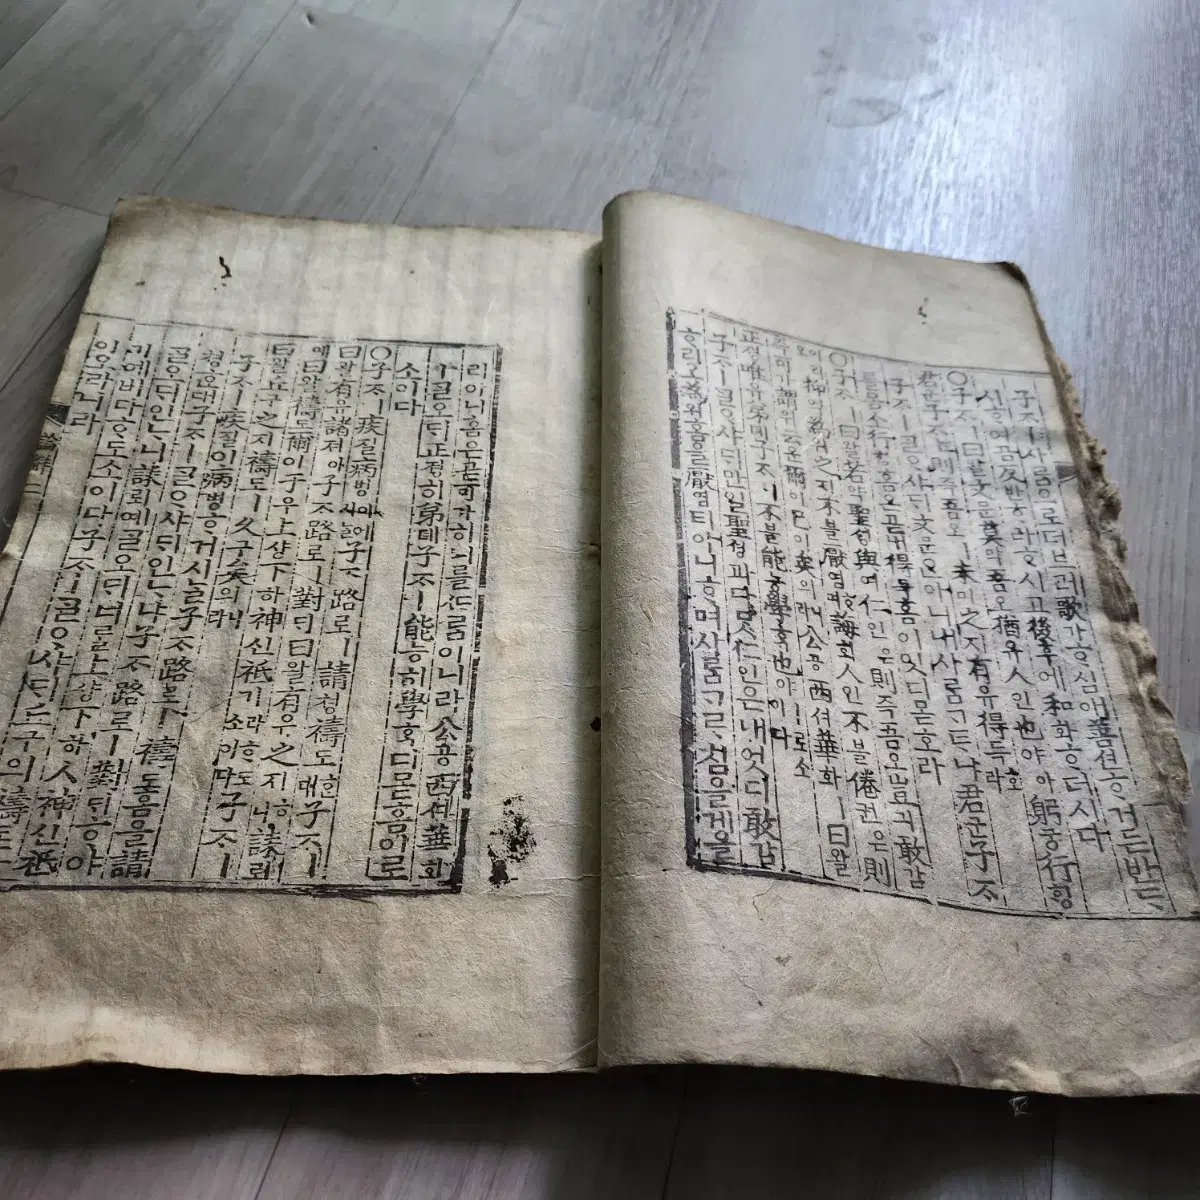 子ᄌᆞㅣ사ᄅᆞᆷ으로더브러歌가ᄒᆞ심애善션ᄒᆞ거든반ᄃᆞ
시ᄒᆞ여곰反반ᄒᆞ라ᄒᆞ시고後후에和화ᄒᆞ더시다
○子ᄌᆞㅣ曰왈文문莫막吾오猶유人인也야아躬궁行ᄒᆡᆼ
君군子ᄌᆞ則즉吾오ㅣ未미之지有유得득호라
子ᄌᆞㅣᄀᆞᆯᄋᆞ샤ᄃᆡ文문은아니내사ᄅᆞᆷᄀᆞᄐᆞ나君군子ᄌᆞ
ᄅᆞᆯ躬궁行ᄒᆡᆼ홈은곧내得득홈이잇디몯호라
○子ᄌᆞㅣ曰왈若약聖셩與여仁인은則즉吾오豈긔敢감
이리오抑억爲위之지不블厭염ᄒᆞ며誨회人인不블倦권은則
즉可가謂위云운爾이已이矣의라니公공西셔華화ㅣ曰왈
正졍唯유弟뎨子ᄌᆞㅣ不블能능學ᄒᆞᆨ也야ㅣ로소이다
子ᄌᆞㅣᄀᆞᆯᄋᆞ샤ᄃᆡ만일聖셩과다ᄆᆞᆺ仁인은내엇디敢감
ᄒᆞ리오爲위홈을厭염티아니ᄒᆞ며사ᄅᆞᆷᄀᆞᄅᆞ침을게을
리아니홈은곧可가히니를ᄯᆞ름이니라公공西셔華화
ㅣᄀᆞᆯ오ᄃᆡ正졍히弟뎨子ᄌᆞㅣ能능히學ᄒᆞᆨ디몯홈이로
소이다
○子ᄌᆞㅣ疾질病병이어시ᄂᆞᆯ子ᄌᆞ路로ㅣ請쳥禱도ᄒᆞᆫ대子ᄌᆞㅣ
曰왈有유諸져아子ᄌᆞ路로ㅣ對ᄃᆡ曰왈有유之지ᄒᆞ니誄뢰
예曰왈禱도爾이于우上샹下하神신祇기라ᄒᆞ도소이다子ᄌᆞㅣ
曰왈丘구之지禱도ㅣ久구矣의니라
子ᄌᆞㅣ疾질이病병ᄒᆞ거시ᄂᆞᆯ子ᄌᆞ路로ㅣ禱도홈을請
쳥ᄒᆞᆫ대子ᄌᆞㅣᄀᆞᆯᄋᆞ샤ᄃᆡ인ᄂᆞ냐子ᄌᆞ路로ㅣ對ᄃᆡᄒᆞ야
ᄀᆞᆯ오ᄃᆡ인ᄂᆞ니誄뢰예ᄀᆞᆯ오ᄃᆡ너를上샹下하神신祇
기예비다ᄒᆞ도소이다子ᄌᆞㅣᄀᆞᆯᄋᆞ샤ᄃᆡ丘구의禱도ㅣ
오라니라
論解二